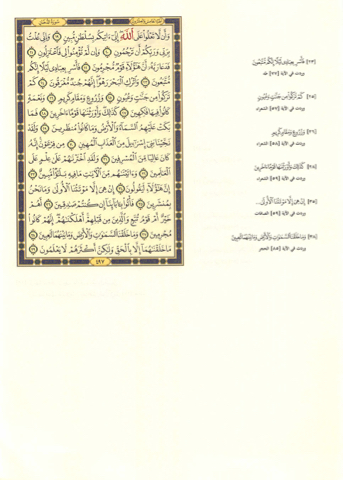 الجزء الخامس والعشرون
سورة الدخان
وَأَن لَّا تَعْلُوا۟ عَلَى ٱللَّهِ إِنِّىٓ ءَاتِيكُم بِسُلْطَٰنٍ مُّبِينٍ ١٩ وَإِنِّى عُذْتُ
بِرَبِّى وَرَبِّكُمْ أَن تَرْجُمُونِ ٢٠ وَإِن لَّمْ تُؤْمِنُوا۟ لِى فَٱعْتَزِلُونِ ٢١
فَدَعَا رَبَّهُۥٓ أَنَّ هَٰٓؤُلَآءِ قَوْمٌ مُّجْرِمُونَ ٢٢ فَأَسْرِ بِعِبَادِى لَيْلًا إِنَّكُم
مُّتَّبَعُونَ ٢٣ وَٱتْرُكِ ٱلْبَحْرَ رَهْوًا إِنَّهُمْ جُندٌ مُّغْرَقُونَ ٢٤ كَمْ
تَرَكُوا۟ مِن جَنَّٰتٍ وَعُيُونٍ ٢٥ وَزُرُوعٍ وَمَقَامٍ كَرِيمٍ ٢٦ وَنَعْمَةٍ
كَانُوا۟ فِيهَا فَٰكِهِينَ ٢٧ كَذَٰلِكَ وَأَوْرَثْنَٰهَا قَوْمًا ءَاخَرِينَ ٢٨ فَمَا
بَكَتْ عَلَيْهِمُ ٱلسَّمَآءُ وَٱلْأَرْضُ وَمَا كَانُوا۟ مُنظَرِينَ ٢٩ وَلَقَدْ
نَجَّيْنَا بَنِىٓ إِسْرَٰٓءِيلَ مِنَ ٱلْعَذَابِ ٱلْمُهِينِ ٣٠ مِن فِرْعَوْنَ إِنَّهُۥ
كَانَ عَالِيًا مِّنَ ٱلْمُسْرِفِينَ ٣١ وَلَقَدِ ٱخْتَرْنَٰهُمْ عَلَىٰ عِلْمٍ عَلَى
ٱلْعَٰلَمِينَ ٣٢ وَءَاتَيْنَٰهُم مِّنَ ٱلْءَايَٰتِ مَا فِيهِ بَلَٰٓؤٌا۟ مُّبِينٌ ٣٣
إِنَّ هَٰٓؤُلَآءِ لَيَقُولُونَ ٣٤ إِنْ هِىَ إِلَّا مَوْتَتُنَا ٱلْأُولَىٰ وَمَا نَحْنُ
بِمُنشَرِينَ ٣٥ فَأْتُوا۟ بِـَٔابَآئِنَآ إِن كُنتُمْ صَٰدِقِينَ ٣٦ أَهُمْ
خَيْرٌ أَمْ قَوْمُ تُبَّعٍ وَٱلَّذِينَ مِن قَبْلِهِمْ أَهْلَكْنَٰهُمْ إِنَّهُمْ كَانُوا۟
مُجْرِمِينَ ٣٧ وَمَا خَلَقْنَا ٱلسَّمَٰوَٰتِ وَٱلْأَرْضَ وَمَا بَيْنَهُمَا لَٰعِبِينَ ٣٨
مَا خَلَقْنَٰهُمَآ إِلَّا بِٱلْحَقِّ وَلَٰكِنَّ أَكْثَرَهُمْ لَا يَعْلَمُونَ ٣٩
٤٩٧
[٢٣] فَأَسْرِ بِعِبَادِى لَيْلًا إِنَّكُم مُّتَّبَعُونَ
وردت في الآية [٧٧] طه
[٢٥] كَمْ تَرَكُوا۟ مِن جَنَّٰتٍ وَعُيُونٍ
وردت في الآية [٥٧] الشعراء
[٢٦] وَزُرُوعٍ وَمَقَامٍ كَرِيمٍ
وردت في الآية [٥٨] الشعراء
[٢٨] كَذَٰلِكَ وَأَوْرَثْنَٰهَا قَوْمًا ءَاخَرِينَ
وردت في الآية [٥٩] الشعراء
[٣٥] إِنْ هِىَ إِلَّا مَوْتَتُنَا ٱلْأُولَىٰ...
وردت في الآية [٥٩] الصافات
[٣٨] وَمَا خَلَقْنَا ٱلسَّمَٰوَٰتِ وَٱلْأَرْضَ وَمَا بَيْنَهُمَا لَٰعِبِينَ
وردت في الآية [٨٥] الحجر